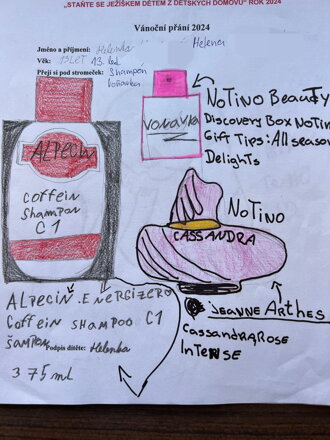 „STAŇTE SE JEŽÍŠKEM DĚTEM Z DĚTSKÝCH DOMOVŮ" ROK 2024
Vánoční přání 2024
Jméno a příjmení: Helenka Helena
Věk: 13 LET 13. let
Přeji si pod stromeček: Shampón
Voňavka
ALPECIN
COFFEIN
SHAMPON
C1
VOŇAVKA
NOTINO BEAUTY
Discovery Box NOTIN
Gift Tips: All season
Delights
NOTINO
CASSANDRA
JEANNE ARTHES
CASSANDRA ROSE
INTENSE
ALPECIN ENERGIZER
Coffein SHAMPOO C1
ŠAMPON
Podpis dítěte: Helenka
375 ml